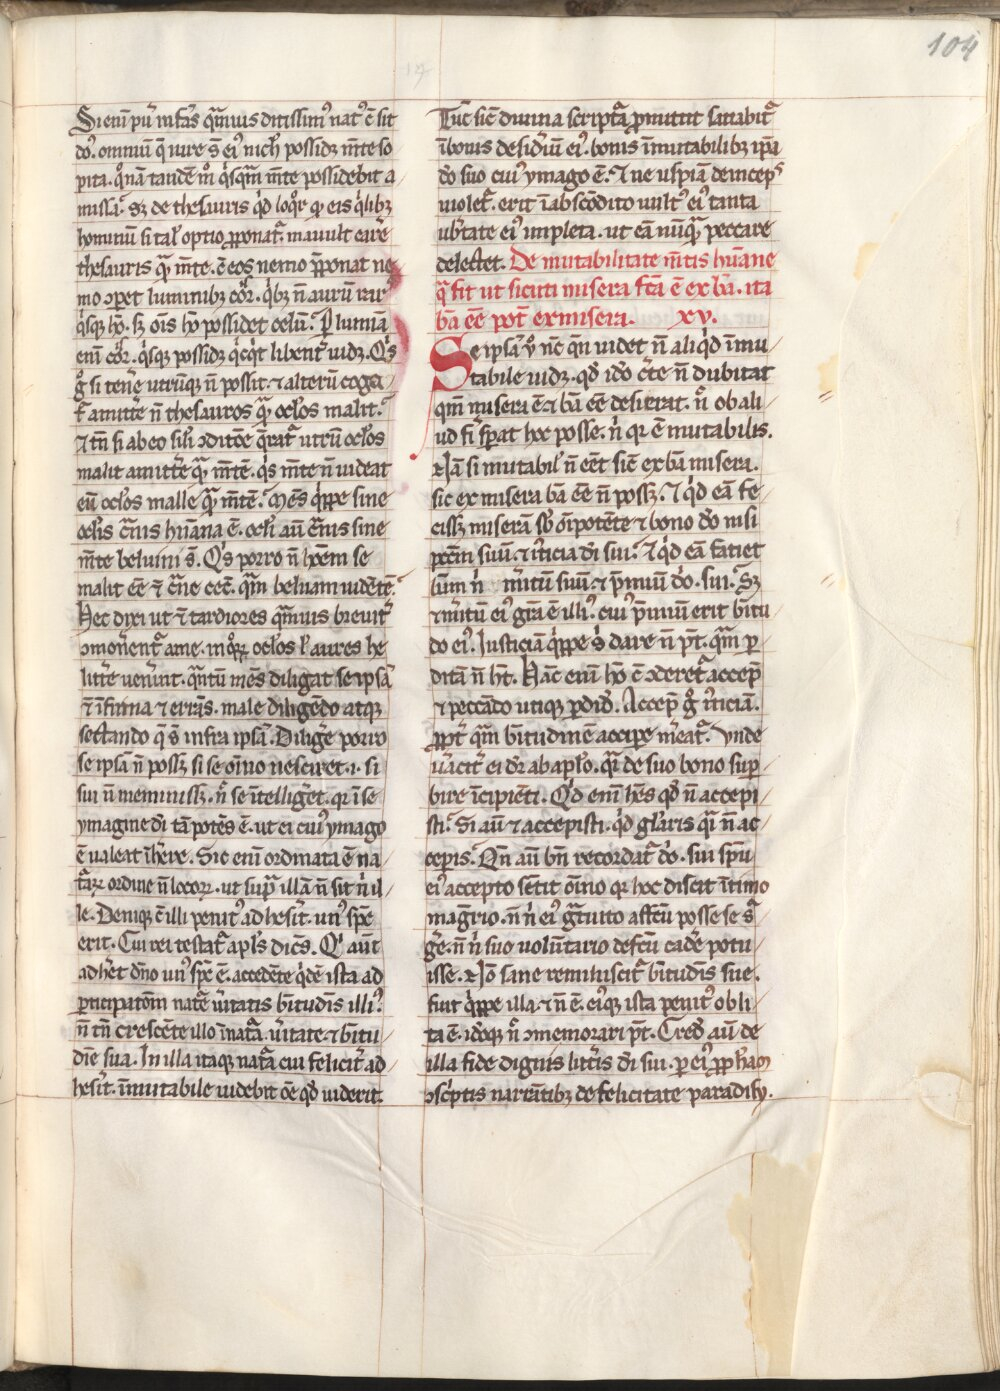 104
17
Si eni͂ pu͂ infa͂s q͂muis ditissim᷒ nat᷒ ē sit
do᷒. omniū q̄ iure s̄ ei᷒ nich̕ possidꝫ m̄te so
pita. q̊nā tandē m̊ q̇sq̄m m̄te possidebit a
missa᷒. Sꝫ de thesauris q̇d loq̊r qꝫ eis q̇libꝫ
hominū si tal̕ optio ꝓponat᷑. mauult car̄e
thesauris q̄ m̄te. ē eos nemo p̄ponat ne
mo ꝯꝑet luminibꝫ cor̄. q̇bꝫ n̄ aurū rar᷒
q̇sqꝫ hō. sꝫ oīs hō possidet celū. P̱ luminā
eni͂ cor̄. q̇sqꝫ possidꝫ q̇cq̇t libent̄ uidꝫ. Q̇s
g̊ si ten̄e utrūqꝫ n̄ possit. ⁊ alterū coga
t᷑ amitt̄e n̄ thesauros q̄ oc̕los malit.
⁊ tn̄ si ab eo sil̕i ꝯditōe q̄rat᷑ utrū oc̕los
malit amitt̄e q̄ m̄tē. q̇s m̄te n̄ uideat
eū oc̕los malle q̄ m̄tē. Mēs q̇ppe sine
oc̕lis c̄nis hūana ē. oc̕li aū c̄nis sine
m̄te beluini s̄. Q̇s porro n̄ ho͂em se
malit eē ⁊ c̄ne cecū. q̄m beluam uidētē.
Hec dixi ut ⁊ tardiores q̄muis breuit̄
ꝯmonent᷑ a me. in q̊ꝝ oc̕los l̕ aures he
litt̄e uen̄int. q̄ntū mēs diligat se ipsā
⁊ īfirma ⁊ errās. male diligēdo atqꝫ
sectando q̄ s̄ infra ipsā. Diliḡe porro
se ipsā n̄ possꝫ si se oīno nesciret. i. si
sui n̄ meminissꝫ. n̊ se ītelligēt. qr ī se
ymagine di͂ tā potēs ē. ut ei cui᷒ ymago
ē ualeat īh̄ere. Sic eni͂ ordinata ē na
t᷑aꝝ ordine n̄ locoꝝ. ut sup̄ illā n̄ sit n̊ il
le. Deniqꝫ cē illi penit᷒ adhes̄it. un᷒ spe͂
erit. Cui rei testat᷑ apl̕s dicēs. Q̇ aūt
adh̄et dn͂o un᷒ spe͂ ē. accedēte q̇dē ista ad
ꝑticipatōm nat᷑e u̇itatis b͂titudīs illi᷒.
n̄ tn̄ crescēte illo ī nat᷑a. u̇itate ⁊ b͂titu
die sua. In illa itaqꝫ nat᷑a cui felicit̄ ad
hes̄it. īmutabile uidebit oē qd̕ uiderit.
Tūc sic̄ diuina script᷑a ꝓmittit satiabit᷑
ī bonis desid̄iū ei᷒. bonis īmutabilibꝫ ip̄a
do͂ suo cui᷒ ymago ē. ⁊ ne uspiā deincep᷒
uiolet᷑. erit ī abscōdito uult᷒ ei᷒ tanta
ub̄tate ei᷒ impleta. ut eā nūq̄ peccare
delectet. De mutabilitate m̄tis hūane
q̄ fit ut sicuti misera fc͂a ē ex b͂a. ita
b͂a eē pot̄ ex misera. xv.
Se ipsā u̇ nc̄ q̄n uidet n̄ aliq̇d īmu
tabile uidꝫ. qd̕ iđo c̄te n̄ dubitat
qm̄ misera ē ⁊ b͂a eē desiderat. n̊ ob ali
ud fi͂ sp̄at hoc posse. n̊ qr ē mutabilis.
Nā si mutabil̕ n̄ eēt sic̄ ex b͂a misera.
sic ex misera b͂a eē n̄ possꝫ. ⁊ q̇d eā fe
cissꝫ miserā sb̕ oīpotēte ⁊ bono do͂ nisi
pecc̄m suū. ⁊ iusticia di͂ sui. ⁊ q̇d eā faciet
b͂am n̊ m̄itū suū. ⁊ p̄miū do͂. sui. Sꝫ
⁊ m̄itū ei᷒ gr͂a ē illi᷒. cui᷒ p̄miū erit b͂titu
do ei᷒. Iusticiā q̇ppe s̊ dare n̄ pōt. q̄m ꝑ
ditā n̄ h͂t. Hāc eni͂ hō cū ꝯderet᷑ accep̄
⁊ peccādo utiqꝫ ꝑdid̄. Accep̄ g̊ iusticiā.
ꝓpt̄ q̄m b͂titudinē accipe m̄eat᷑. Vnde
u̇acit̄ ei d͂r ab apl̕o. q̄i de suo bono suꝑ
bire īcipiēti. Q̇d eni͂ hēs qd̕ n̄ accepi
sti. Si aū ⁊ accepisti. q̇d gl̕aris q̄i n̄ ac
cep̄is. Qn̄ aū bn̄ recordat᷑ do͂. sui spū
ei᷒ accepto sētit oīno qr hoc discit ītimo
maḡrio. n̄ n̊ ei᷒ g᷑tuito affc̄u posse se s᷑
ḡe. n̄ n̊ suo uolūtario defc̄u cad̄e potu
isse. Nō sane reminiscit᷑ b͂titudīs sue.
fuit q̇ppe illa ⁊ n̄ ē. ei᷒qꝫ ista penit᷒ obli
ta ē. iđoqꝫ n̊ ꝯmemorari pōt. Cred̄ aū de
illa fide dignis litt̄is di͂ sui. ꝑ ei᷒ ꝓph͂am
ꝯsc̄ptis narrātibꝫ de felicitate paradisy.